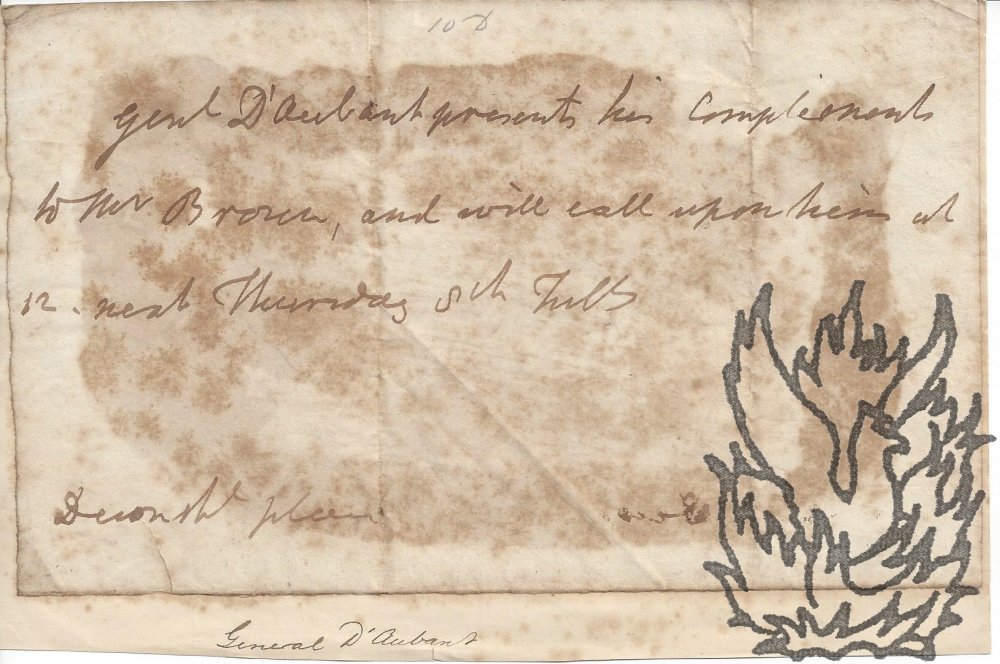 10 D
Genl D'Aubant presents his Compliments
to Mr Brown, and will call upon him at
12. next Thursday 8th
Devonshr place
General D'Aubant